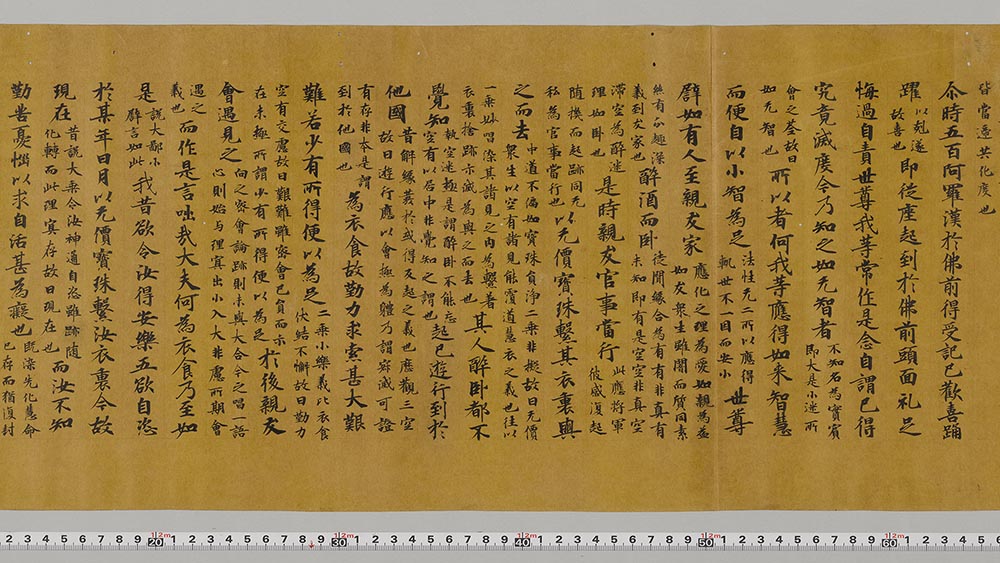 皆遠共化度也
尒時五百阿羅漢於佛前得受記已歡喜踊
躍以剋遂故喜也即從座起到於佛前頭面礼足
悔過自責世尊我等常作是念自謂已得
究竟滅度今乃知之如无智者不知名為實賓即大是小迷所
會之筌故曰如无智也所以者何我等應得如来智慧
而便自以小智為足法性无二所以應得執世不一因而安小世尊
譬如有人至親友家應化之理為愛如親為益如友衆生雖闇而質同素
然有趣深義到友家也醉酒而卧徒聞緣合為有有非真有未知即有是空空非真空
滞空為醉迷理如卧也是時親友官事當行此應将軍彼感復起
随換而起跡同无私為官事當行也以无價寶珠繫其衣裏與
之而去中道不偏如寶珠負浄二乗非擬故曰无價衆生以空有諸見能濵道慧衣之義也往以
一乗妙唱深其諸見之内為繫着衣裏捨跡示滅為與之而去也其人醉卧都不
覺知執空迷極是謂醉卧不能忘空有以居中非覺知之謂也起已遊行到於
他國昔解緣若於或得友起之義也歷觀三空故曰遊行應以會極為體乃謂寂滅可證
有存非本是謂到於他國也為衣食故勤力求索甚大艱
難若少有所得便以為足二乗小樂義比衣食伏結不懈故曰勤力
空有交慮故曰艱難雖寂會已負而示在未極所謂少有所得便以為足於後親友
會遇見之向之密會論跡則未與大合今之唱一語心則始与理冥出小入大非慮所期會
遇之義也而作是言咄哉大夫何為衣食乃至如
是說大鄙小辟言如此我昔欲令汝得安樂五欲自恣
於某年日月以无價寶珠繫汝衣裏今故
現在昔說大乗令汝神道自恣雖跡随化轉而此理寔存故曰現在也而汝不知
勤苦憂惱以求自活甚為癡也既深先化慧命已存而猶復封